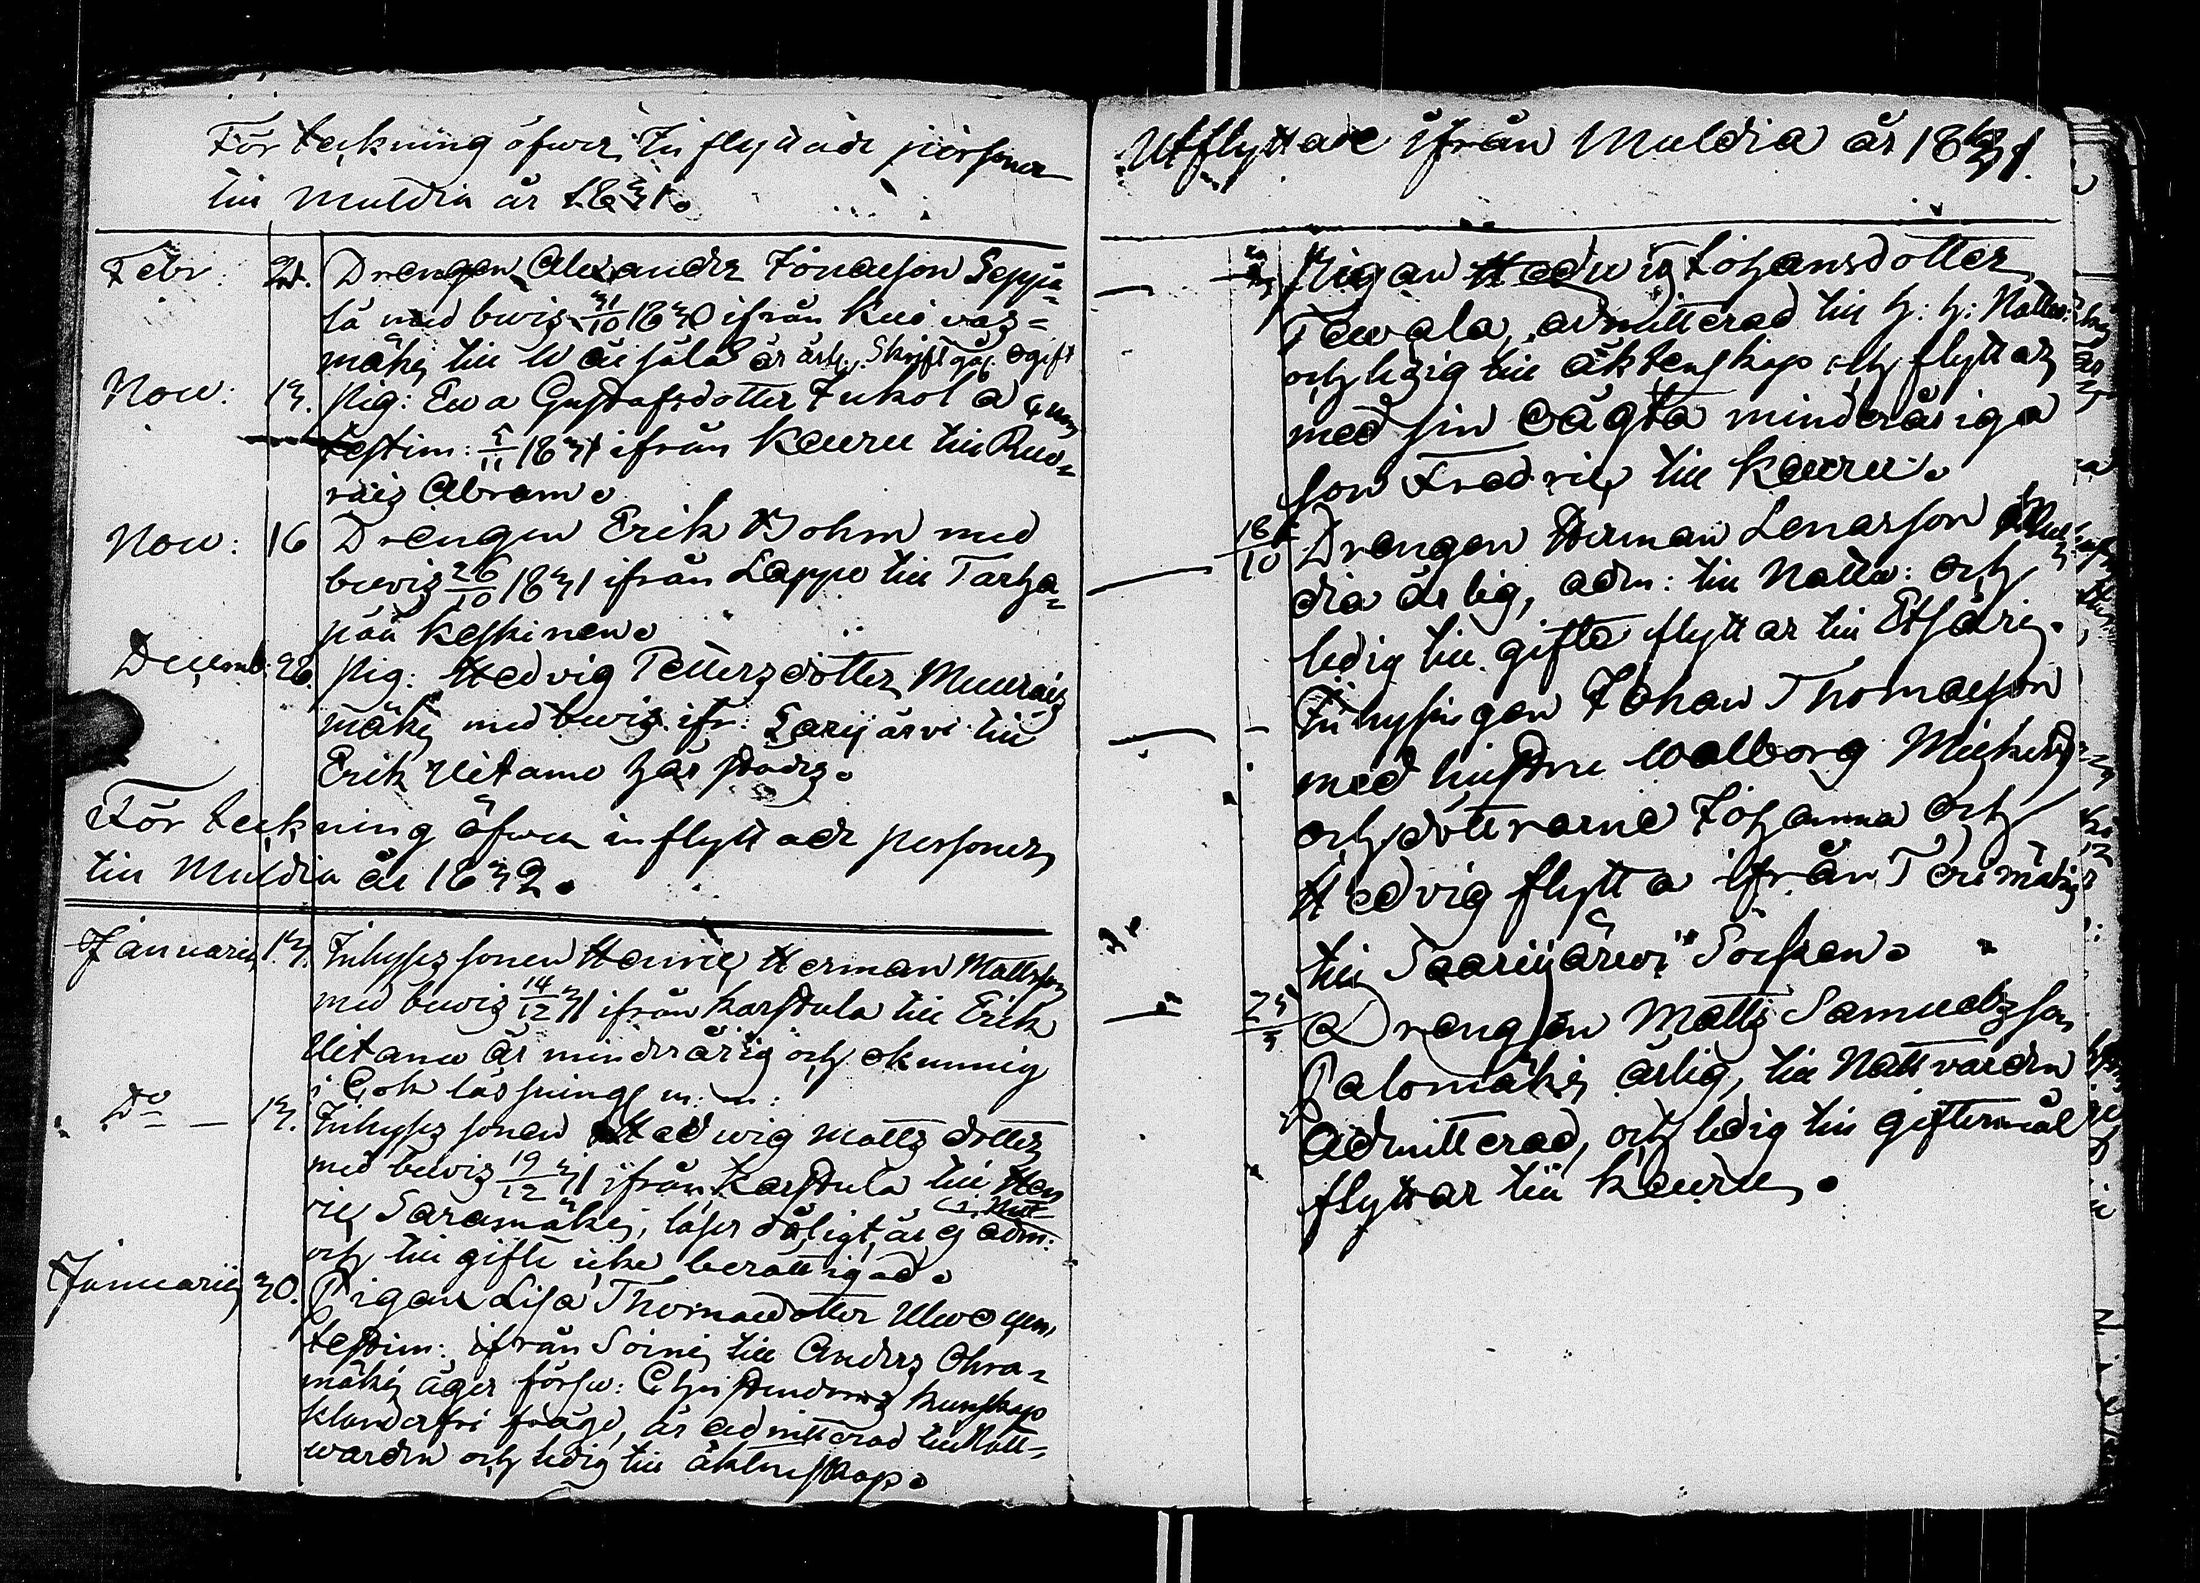 Förteckning öfwer Inflyttade personer
till Muldia år 1831.
Febr: 21. Drengen Alexander Jönaeson Seppä=
lä med bewis 31/10 1830 ifrån Kuivas=
mäki till Wäisälä är ärlig. Skriftgån. ogift
Now: 13. Pig: Ewa Gustafsdotter Jukola cum
testim: 5/11 1831 ifrån Keuru till Ruo=
rais Abram.
Now: 16 Drengen Erik Bohm med
bewis 26/10 1831 ifrån Lappo till Tarha=
pää Keskinen.
Decemb: 26. Pig: Hedvig Pettersdotter Muurais
mäki med bewis ifr: Sarijärvi till
Erik Uitamo härstädes.
Förteckning öfwer inflyttade personer
till Muldia år 1832.
Januarii 13. Inhyses sonen Henric Herman Mattsson
med bewis 14/12 31 ifrån Karstula till Erik
Uitamo är minderårig och okunnig
i Bok läsning m: m:
Do — 13. Inhyses sonen Hedwig Matts dotter
med bewis 19/12 31 ifrån Karstula till Hen
ric Saramäki, läser dåligt, är ej adm: t. Natt=
och till gifte icke berättigad.
Januarii 30. Pigan Lisa Thomaedotter Ulvo cum
testim: ifrån Soini till Anders Ohra=
mäki äger försw: Christendoms kunskap
klanderfri frägd, är admitterad till Natt=
warden och ledig till äktenskap.
Utflyttade ifrån Muldia år 1831.
Pigan Hedwig Johansdotter
Tewala, admitterad till h: h: Nattw:
och ledig till äktenskap och flyttar
med sin oägta minderåriga
son Fredric till Keuru.
18/10 Drengen Herman Lenarson Mul=
dia ärlig, adm: till Nattw: och
ledig till gifte flyttar till Etsäri.
Inhysingen Johan Thomaeson
med hustru Walborg Michelsd
och döttrarne Johanna och
Hedvig flytta ifrån Terimäki
till Saarijärwi Socken.
25/3 Drengen Matts Samuelsson
Palomäki ärlig, till Nattvarden
admitterad, och ledig till giftermål
flyttar till Keuru.